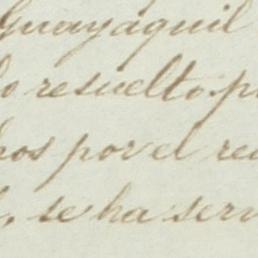 Guayaquil
lo resuelto p
hos por el re
se ha serv